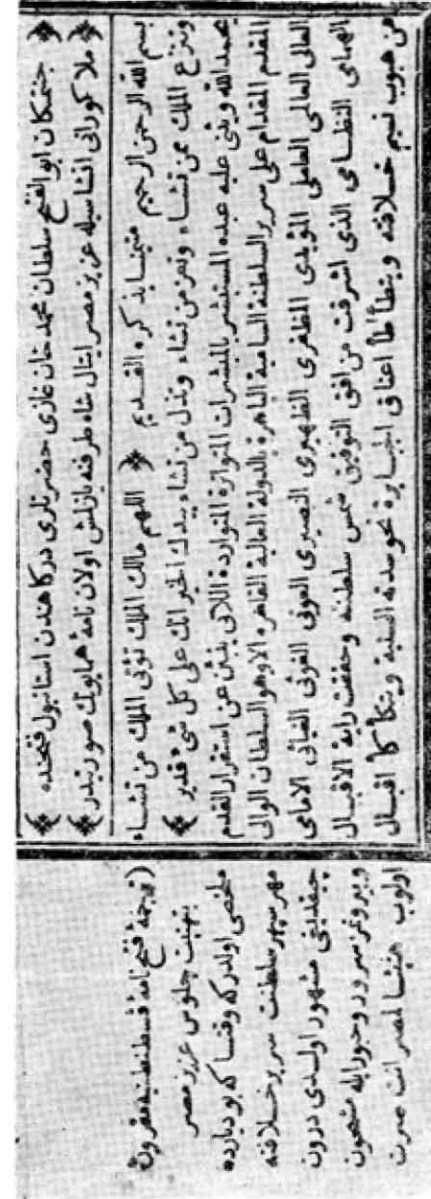 ﴿ جنتمكان ابو الفتح سلطان محمد خان غازى حضرتلرى دركاهندن استانبول فتحنده ﴾
﴿ ملا كورانى انشاسيله عزيز مصر اينال شاه طرفنه يازلش اولان نامۀ همايونك صورتيدر ﴾
بسم الله الرحمن الرحيم متيمنا بذكره القديم ﴿ اللهم مالك الملك تؤتى الملك من تشاء
وتنزع الملك ممن تشاء وتعز من تشاء وتذل من تشاء بيدك الخير انك على كل شئ قدير ﴾
يحمدالله ويثنى عليه عبده المستبشر بالمبشرات المتوازة المتواردة اللاتى ينبئن عن استقرار القدم
المقدم المقدام على سرير السلطنة السامية الباهرة بالدولة العالية القاهره الاوهو السلطان الوالى
العالى العالمى العاملى المؤيدى المظفرى الظهيرى النصيرى العونى الغوثى الغياثى الامامى
الهمامى النظامى الذى اشرقت من افق التوفيق شمس سلطنته وخفقت راية الاقبال
من هبوب نسيم خلافته ويتطأطأ اعناق الجبابرة نحو سدته السنية ويتكأكأ اقبال
(ترجمۀ فتح نامۀ قسطنطنيه مقرون
بتهنيت جلوس عزيز مصر
ملخصى اولدركه وقتا كه بو ديارده
مهر سپهر سلطنت سرير خلافته
چيقديغى مشهود اولدى درون
وبيروغز سرور وحبور ايله مشحون
اولوب هنيئا لمصر انت صرت